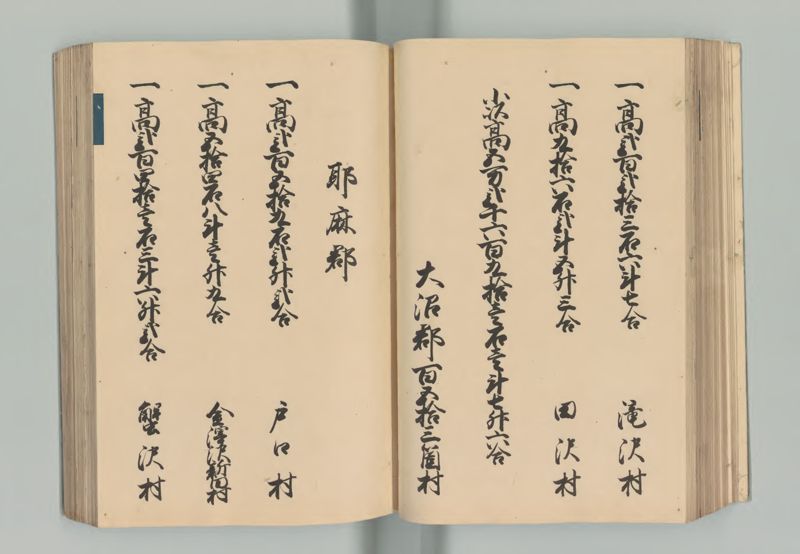 一高弐百弐拾三石六斗七合 滝沢村
一高九拾六石弐斗五升三合 田沢村
小以高五万弐千六百九拾壱石壱斗七升六合
大沼郡百五拾三箇村
耶麻郡
一高弐百五拾九石弐升弐合 戸口村
一高五拾四石八斗壱升九合 金澤沢新田村
一高弐百四拾壱石三斗六升弐合 蟹沢村